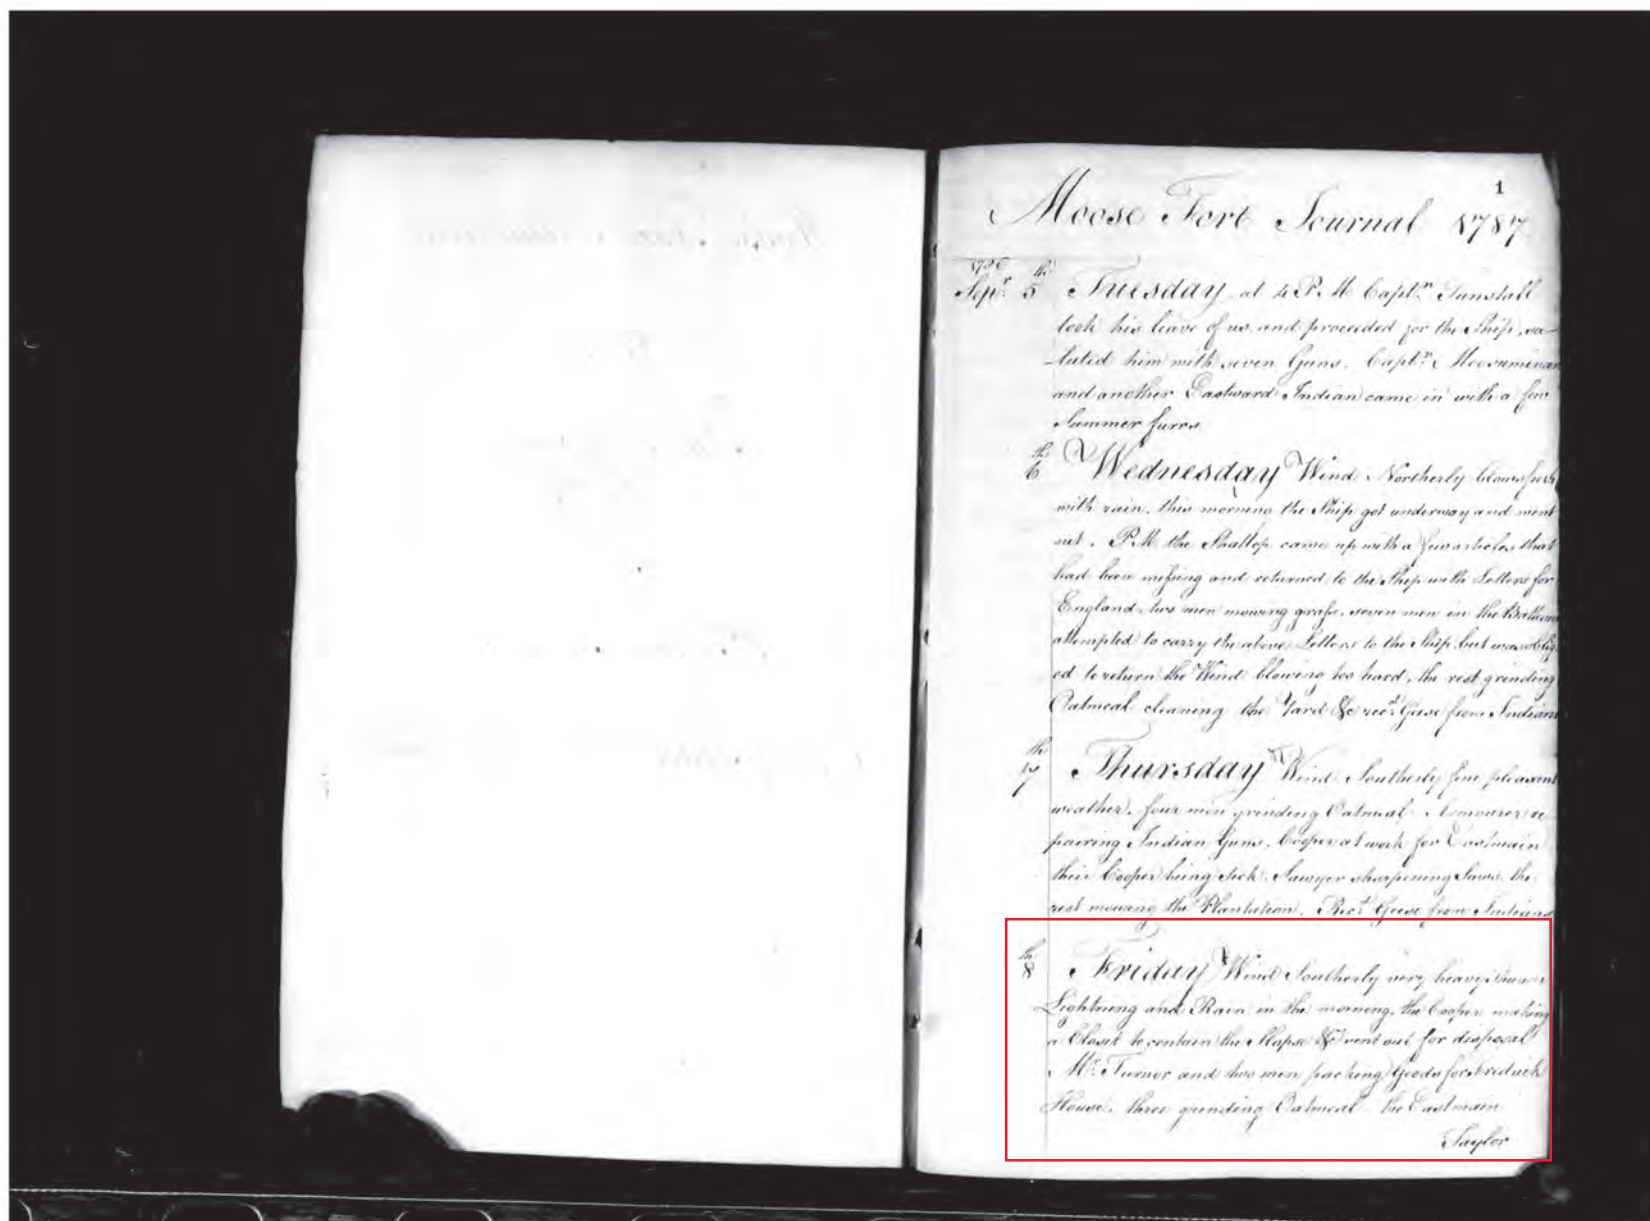 1
Moose Fort Journal 1787
1786
Sepr. 5th Tuesday at 4 P.M Captn. Tunstall
took his leave of us and proceeded for the Ship, sa-
-luted him with seven Guns. Captn.
and another Eastward Indian came in with a few
Summer furrs
6th Wednesday Wind Northerly blows fresh
with rain, this morning the Ship got underway and went
out. P.M the Shallop came up with a few articles that
had been missing and returned to the Ship with Letters for
England, two men mowing grass, seven men in the
attempted to carry the above Letters to the Ship but was oblig
ed to return the Wind blowing too hard, the rest grinding
Oatmeal cleaning the Yard &c recd. Geese from Indians
7th Thursday Wind Southerly fine pleasant
weather, four men grinding Oatmeal Armourer re
pairing Indian Guns, Cooper at work for Eastmain
their Cooper being sick. Sawyer sharpening Saws the
rest mowing the Plantation. Recd. Geese from Indians
8th Friday Wind Southerly very heavy
Lightning and Rain in the morning, the Cooper making
a Closet to contain the Slops &c sent out for disposal
Mr. Turner and two men packing Goods for
House, three grinding Oatmeal the Eastmain
Taylor